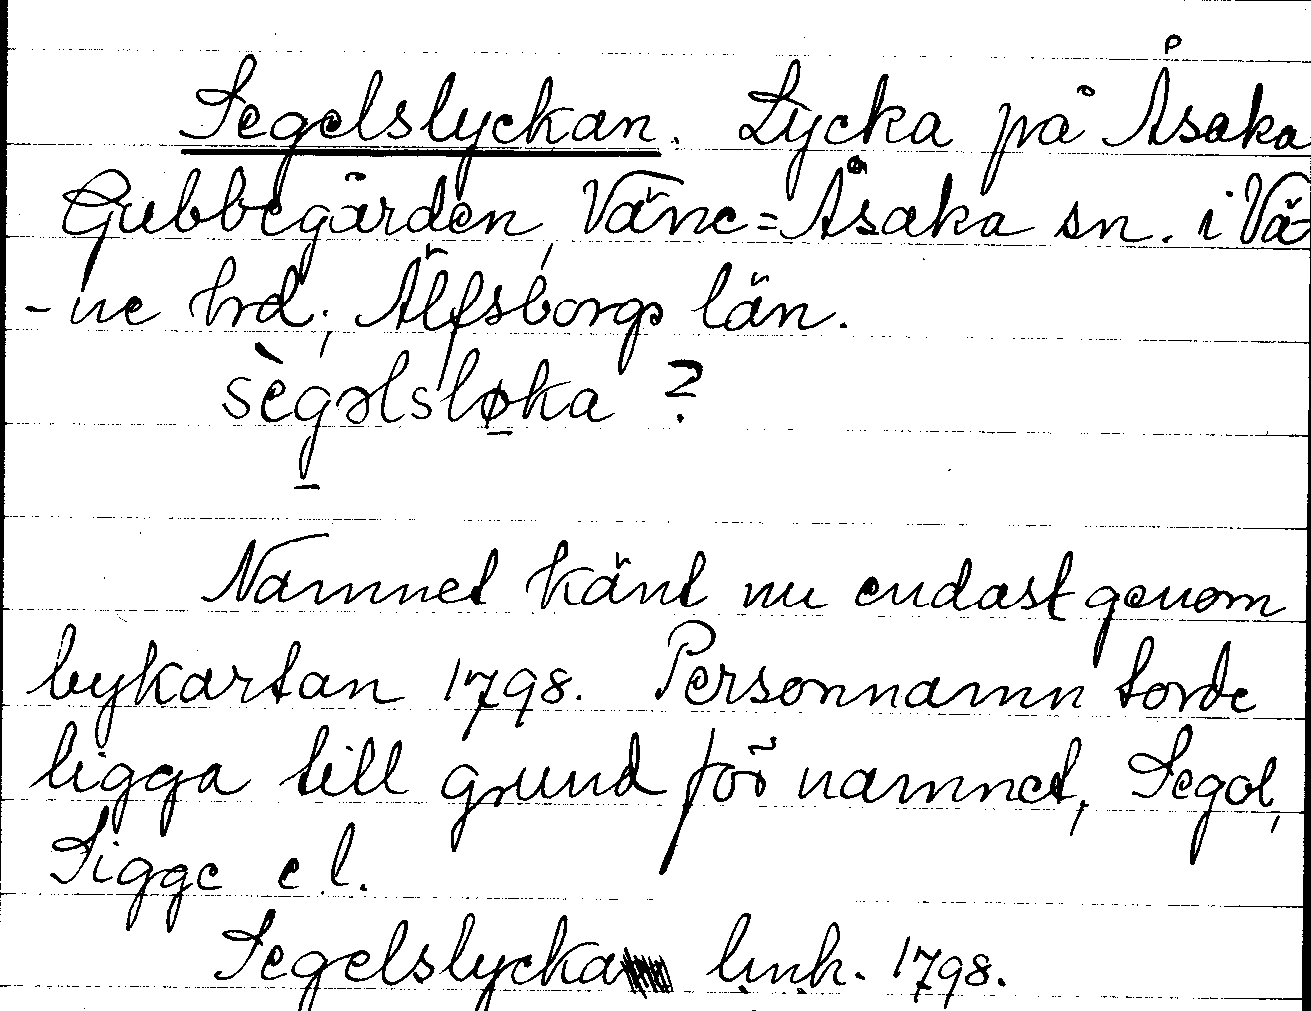 Segelslyckan. Lycka på Åsaka
Gubbegården, Väne=Åsaka sn. i Vä-
-ne hrd; Älfsborgs län.
sègəlsløka ?
Namnet känt nu endast genom
bykartan 1798. Personnamn torde
ligga till grund för namnet, Segol,
Sigge e l.
Segelslycka l.m.k. 1798.